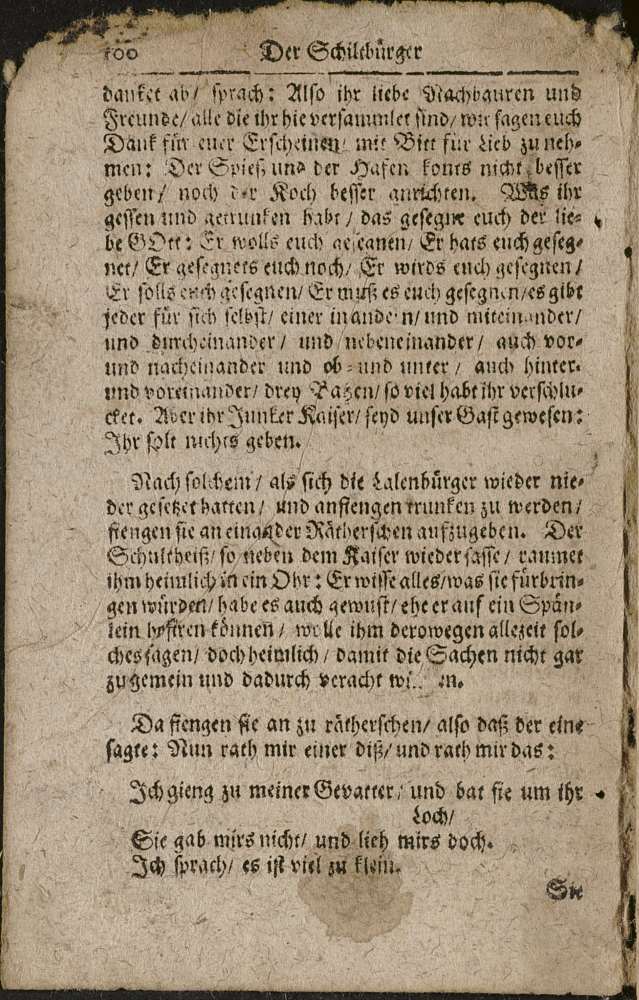 100 Der Schiltbürger
dancket ab/ sprach: Also ihr liebe Nachbauren und
Freunde/ alle die ihr hie versammlet sind/ wir sagen euch
Danck für euer Erscheinen/ mit Bitt für Lieb zu neh-
men: Der Spieß und der Hafen konts nicht besser
geben/ noch der Koch besser anrichten. Was ihr
gessen und getruncken habt/ das gesegne euch der lie-
be GOtt: Er wolls euch gesegnen/ Er hats euch geseg-
net/ Er gesegnets euch noch/ Er wirds euch gesegnen/
Er solls euch gesegnen/ Er muß es euch gesegnen/ es gibt
jeder für sich selbst/ einer in andern/ und miteinander/
und durcheinander/ und nebeneinander/ auch vor-
und nacheinander und ob- und unter/ auch hinter-
und voreinander/ drey Batzen/ so viel habt ihr verschlu-
cket. Aber ihr Juncker Kaiser/ seyd unser Gast gewesen:
Ihr solt nichts geben.
Nach solchem/ als sich die Lalenbürger wieder nie-
der gesetzet hatten/ und anfiengen trunken zu werden/
fiengen sie an einander Rätherschen aufzugeben. Der
Schultheiß/ so neben dem Kaiser wieder sasse/ raumet
ihm heimlich in ein Ohr: Er wisse alles/ was sie fürbrin-
gen würden/ habe es auch gewust/ ehe er auf ein Spän-
lein hoffren können/ wolle ihm derowegen allezeit sol-
ches sagen/ doch heimlich/ damit die Sachen nicht gar
zu gemein und dadurch veracht
Da fiengen sie an zu rätherschen/ also daß der eine
sagte: Nun rath mir einer diß/ und rath mir das:
Ich gieng zu meiner Gevatter/ und bat sie um ihr
Loch/
Sie gab mirs nicht/ und lieh mirs doch.
Ich sprach/ es ist viel zu klein.
Sie